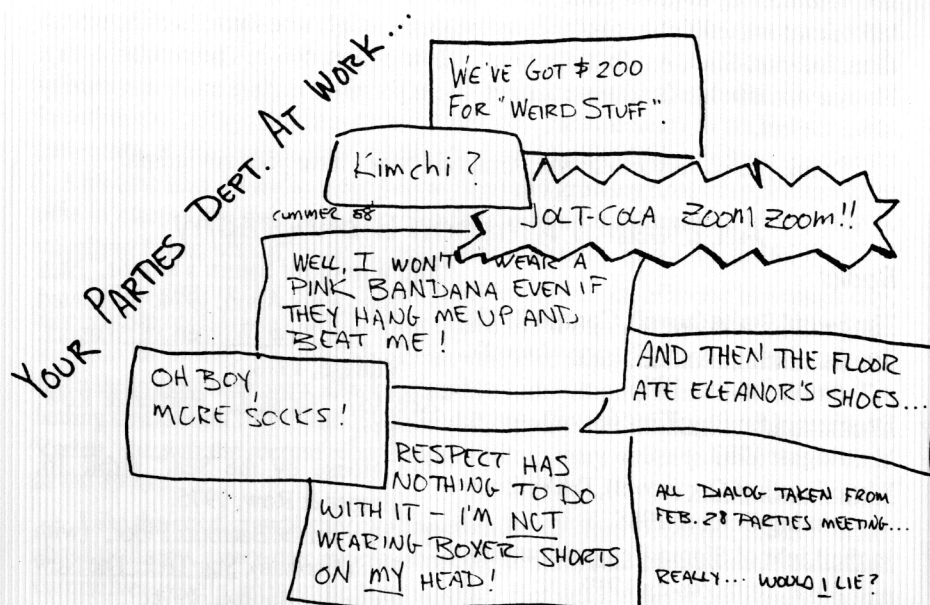 YOUR PARTIES DEPT. AT WORK...
WE'VE GOT $200
FOR "WEIRD STUFF".
Kimchi?
JOLT-COLA ZOOM ZOOM!!
WELL, I WON'T WEAR A
PINK BANDANA EVEN IF
THEY HANG ME UP AND
BEAT ME!
AND THEN THE FLOOR
ATE ELEANOR'S SHOES...
OH BOY,
MORE SOCKS!
RESPECT HAS
NOTHING TO DO
WITH IT - I'M NOT
WEARING BOXER SHORTS
ON MY HEAD!
ALL DIALOG TAKEN FROM
FEB. 28 PARTIES MEETING...
REALLY... WOULD I LIE?